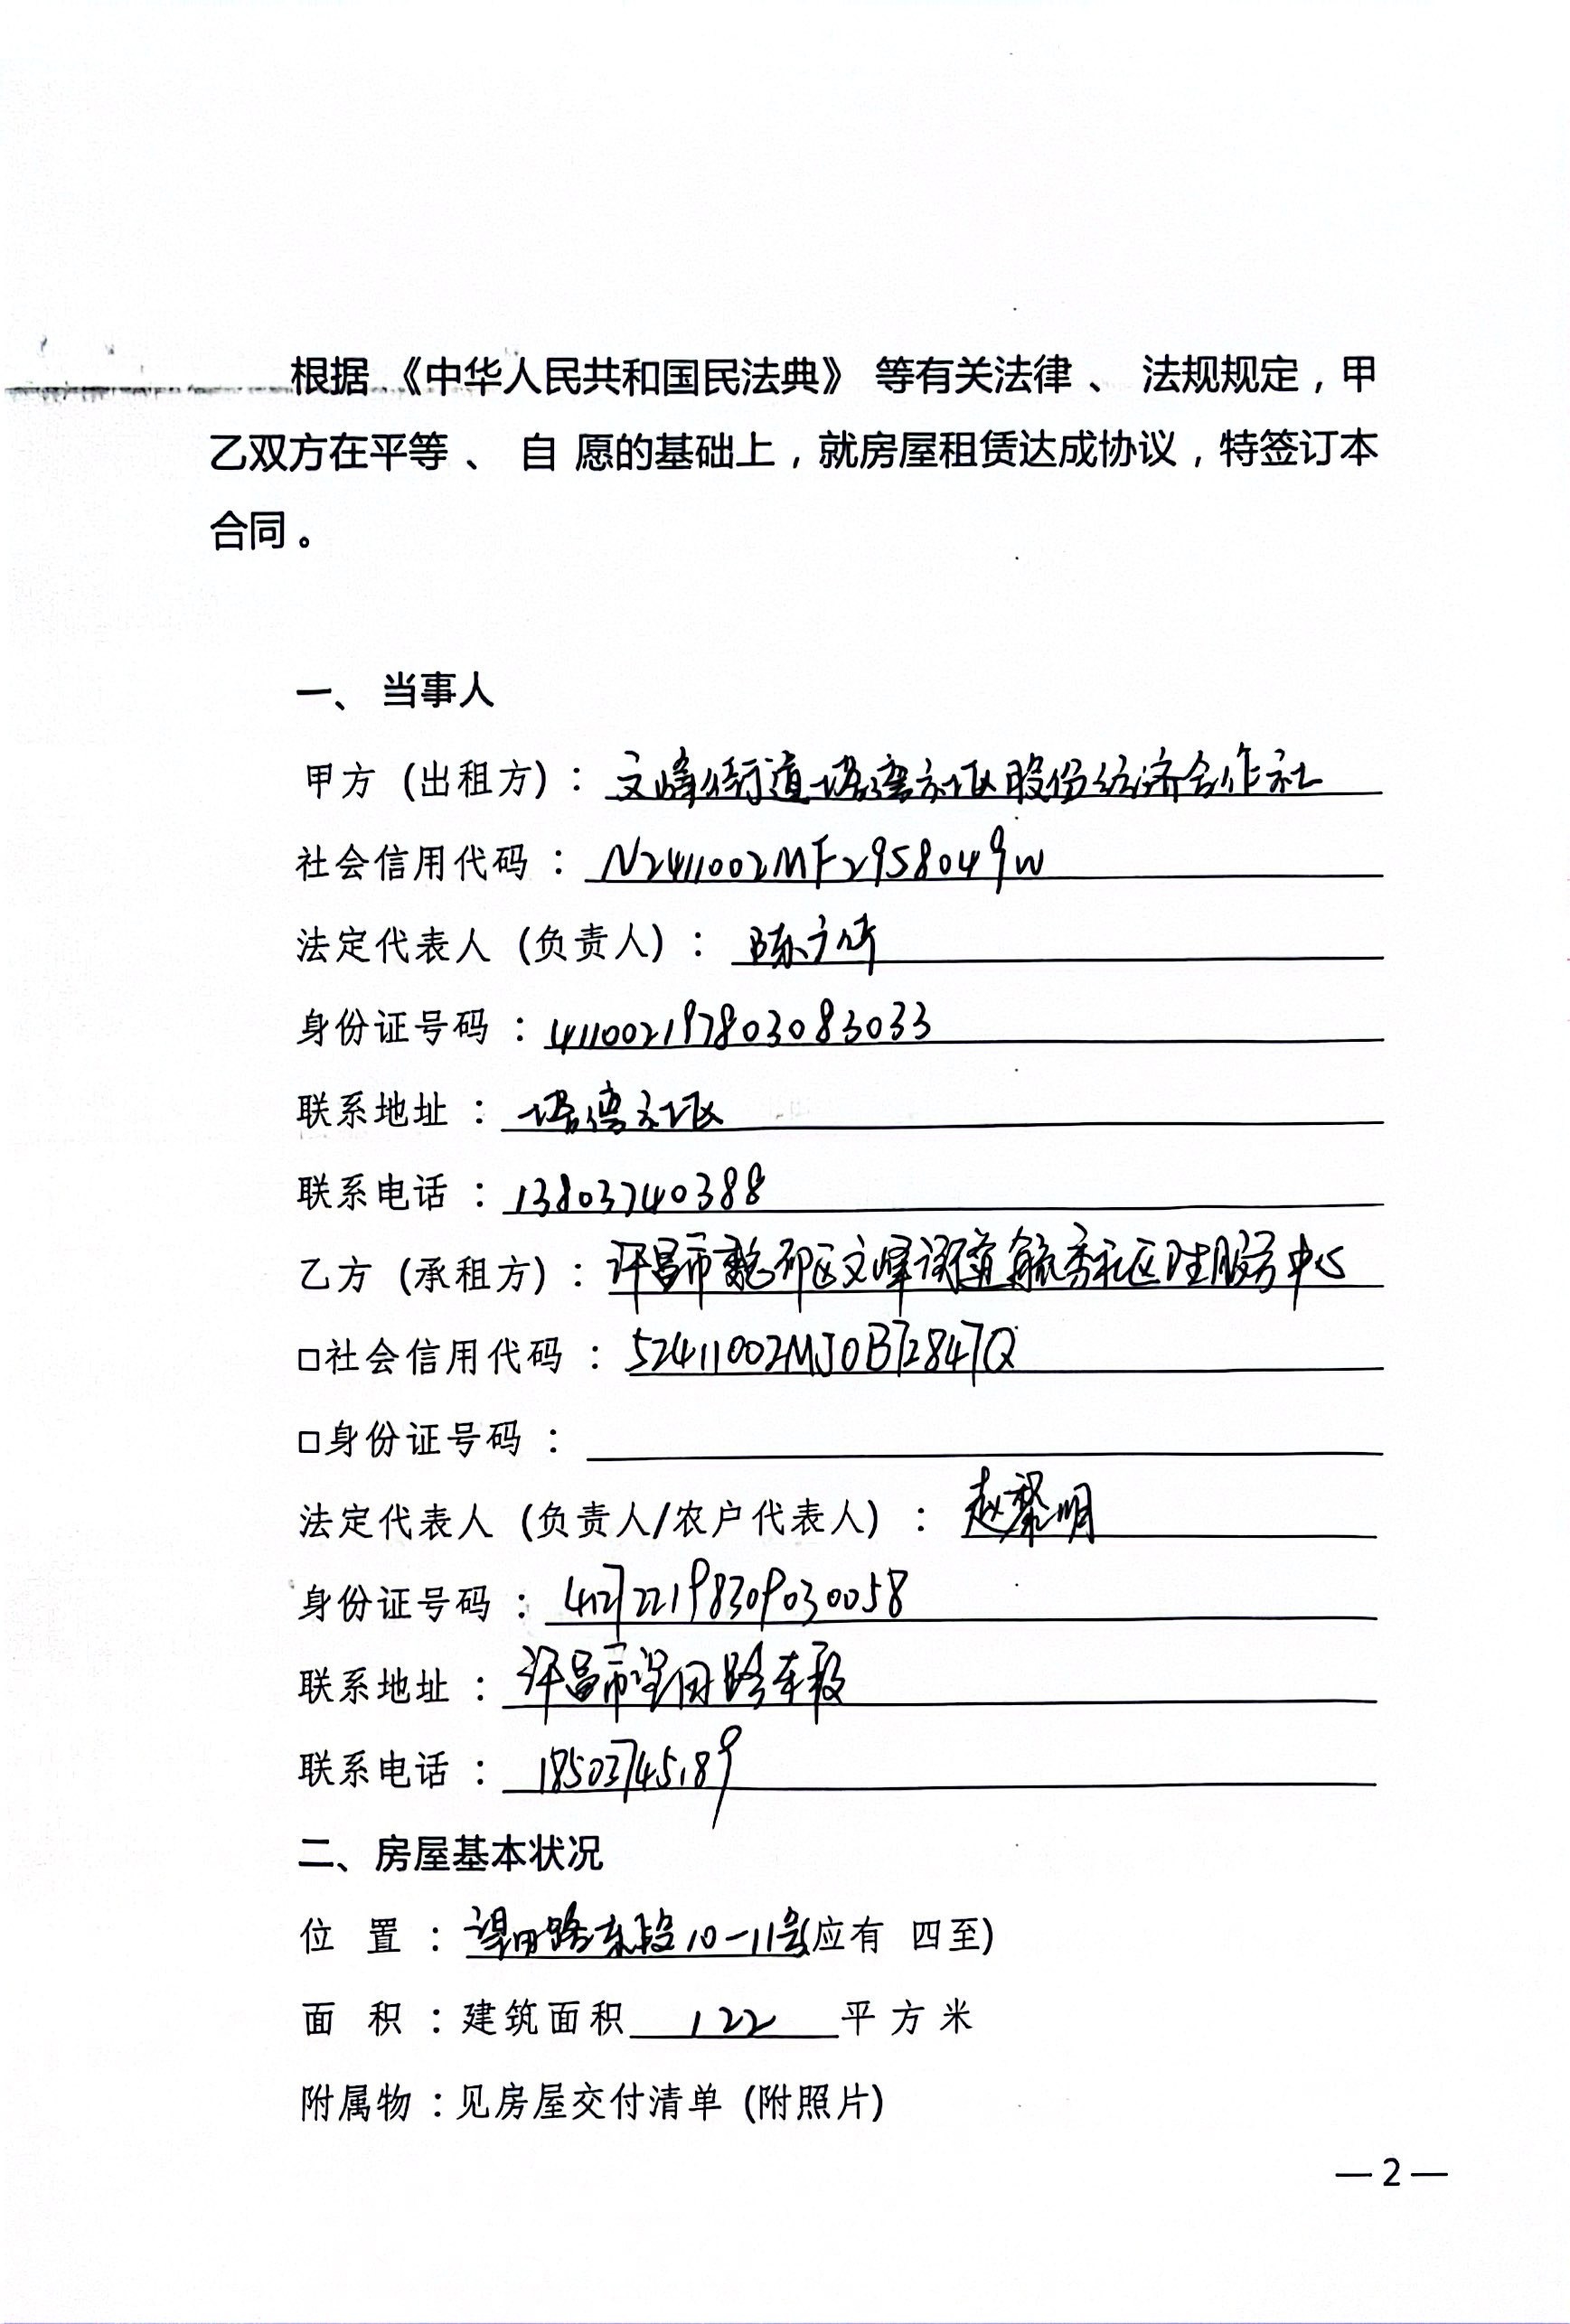 根据《中华人民共和国民法典》 等有关法律 、 法规规定,甲
乙双方在平等 、 自 愿的基础上,就房屋租赁达成协议,特签订本
合同。
一、 当事人
甲方 (出租方) : 文峰街道塔湾社区股份经济合作社
社会信用代码 : N2411002MF2958049W
法定代表人 (负责人) : 陈
身份证号码 : 411002197803083033
联系地址 : 塔湾社区
联系电话 : 13803740388
乙方 (承租方) : 许昌市魏都区文峰街道毓秀社区卫生服务中心
□社会信用代码 : 52411002MJ0B72847Q
□身份证号码 :
法定代表人 (负责人/农户代表人) : 赵黎明
身份证号码 : 412722198309030058
联系地址 : 许昌市望田路东段
联系电话 : 18503745189
二、房屋基本状况
位 置 : 望田路东段10-11号(应有 四至)
面 积 : 建筑面积 122 平方米
附属物 : 见房屋交付清单 (附照片)
—2—